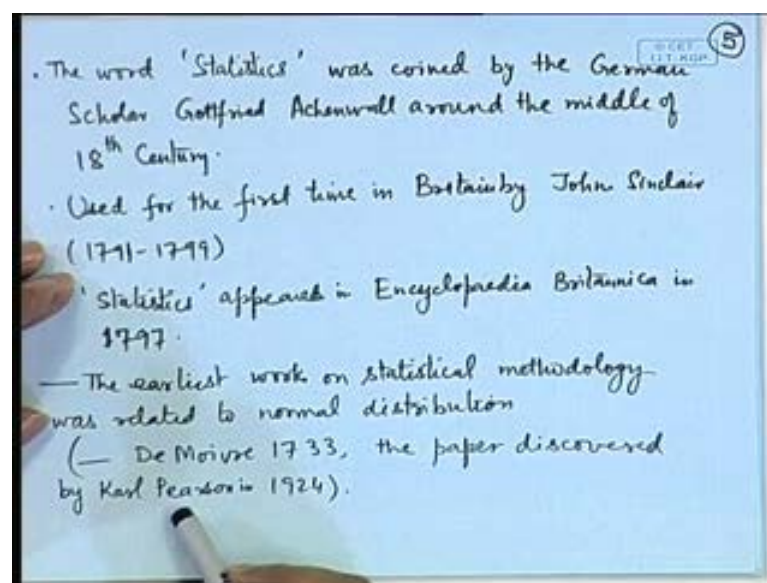 © CET
I.I.T. KGP
5
. The word 'Statistics' was coined by the German
Scholar Gottfried Achenwall around the middle of
18th Century.
. Used for the first time in Britain by John Sinclair
(1791-1799)
'Statistics' appeared in Encyclopaedia Britannica in
1797.
— The earliest work on statistical methodology
was related to normal distribution
(— De Moivre 1733, the paper discovered
by Karl Pearson in 1924).